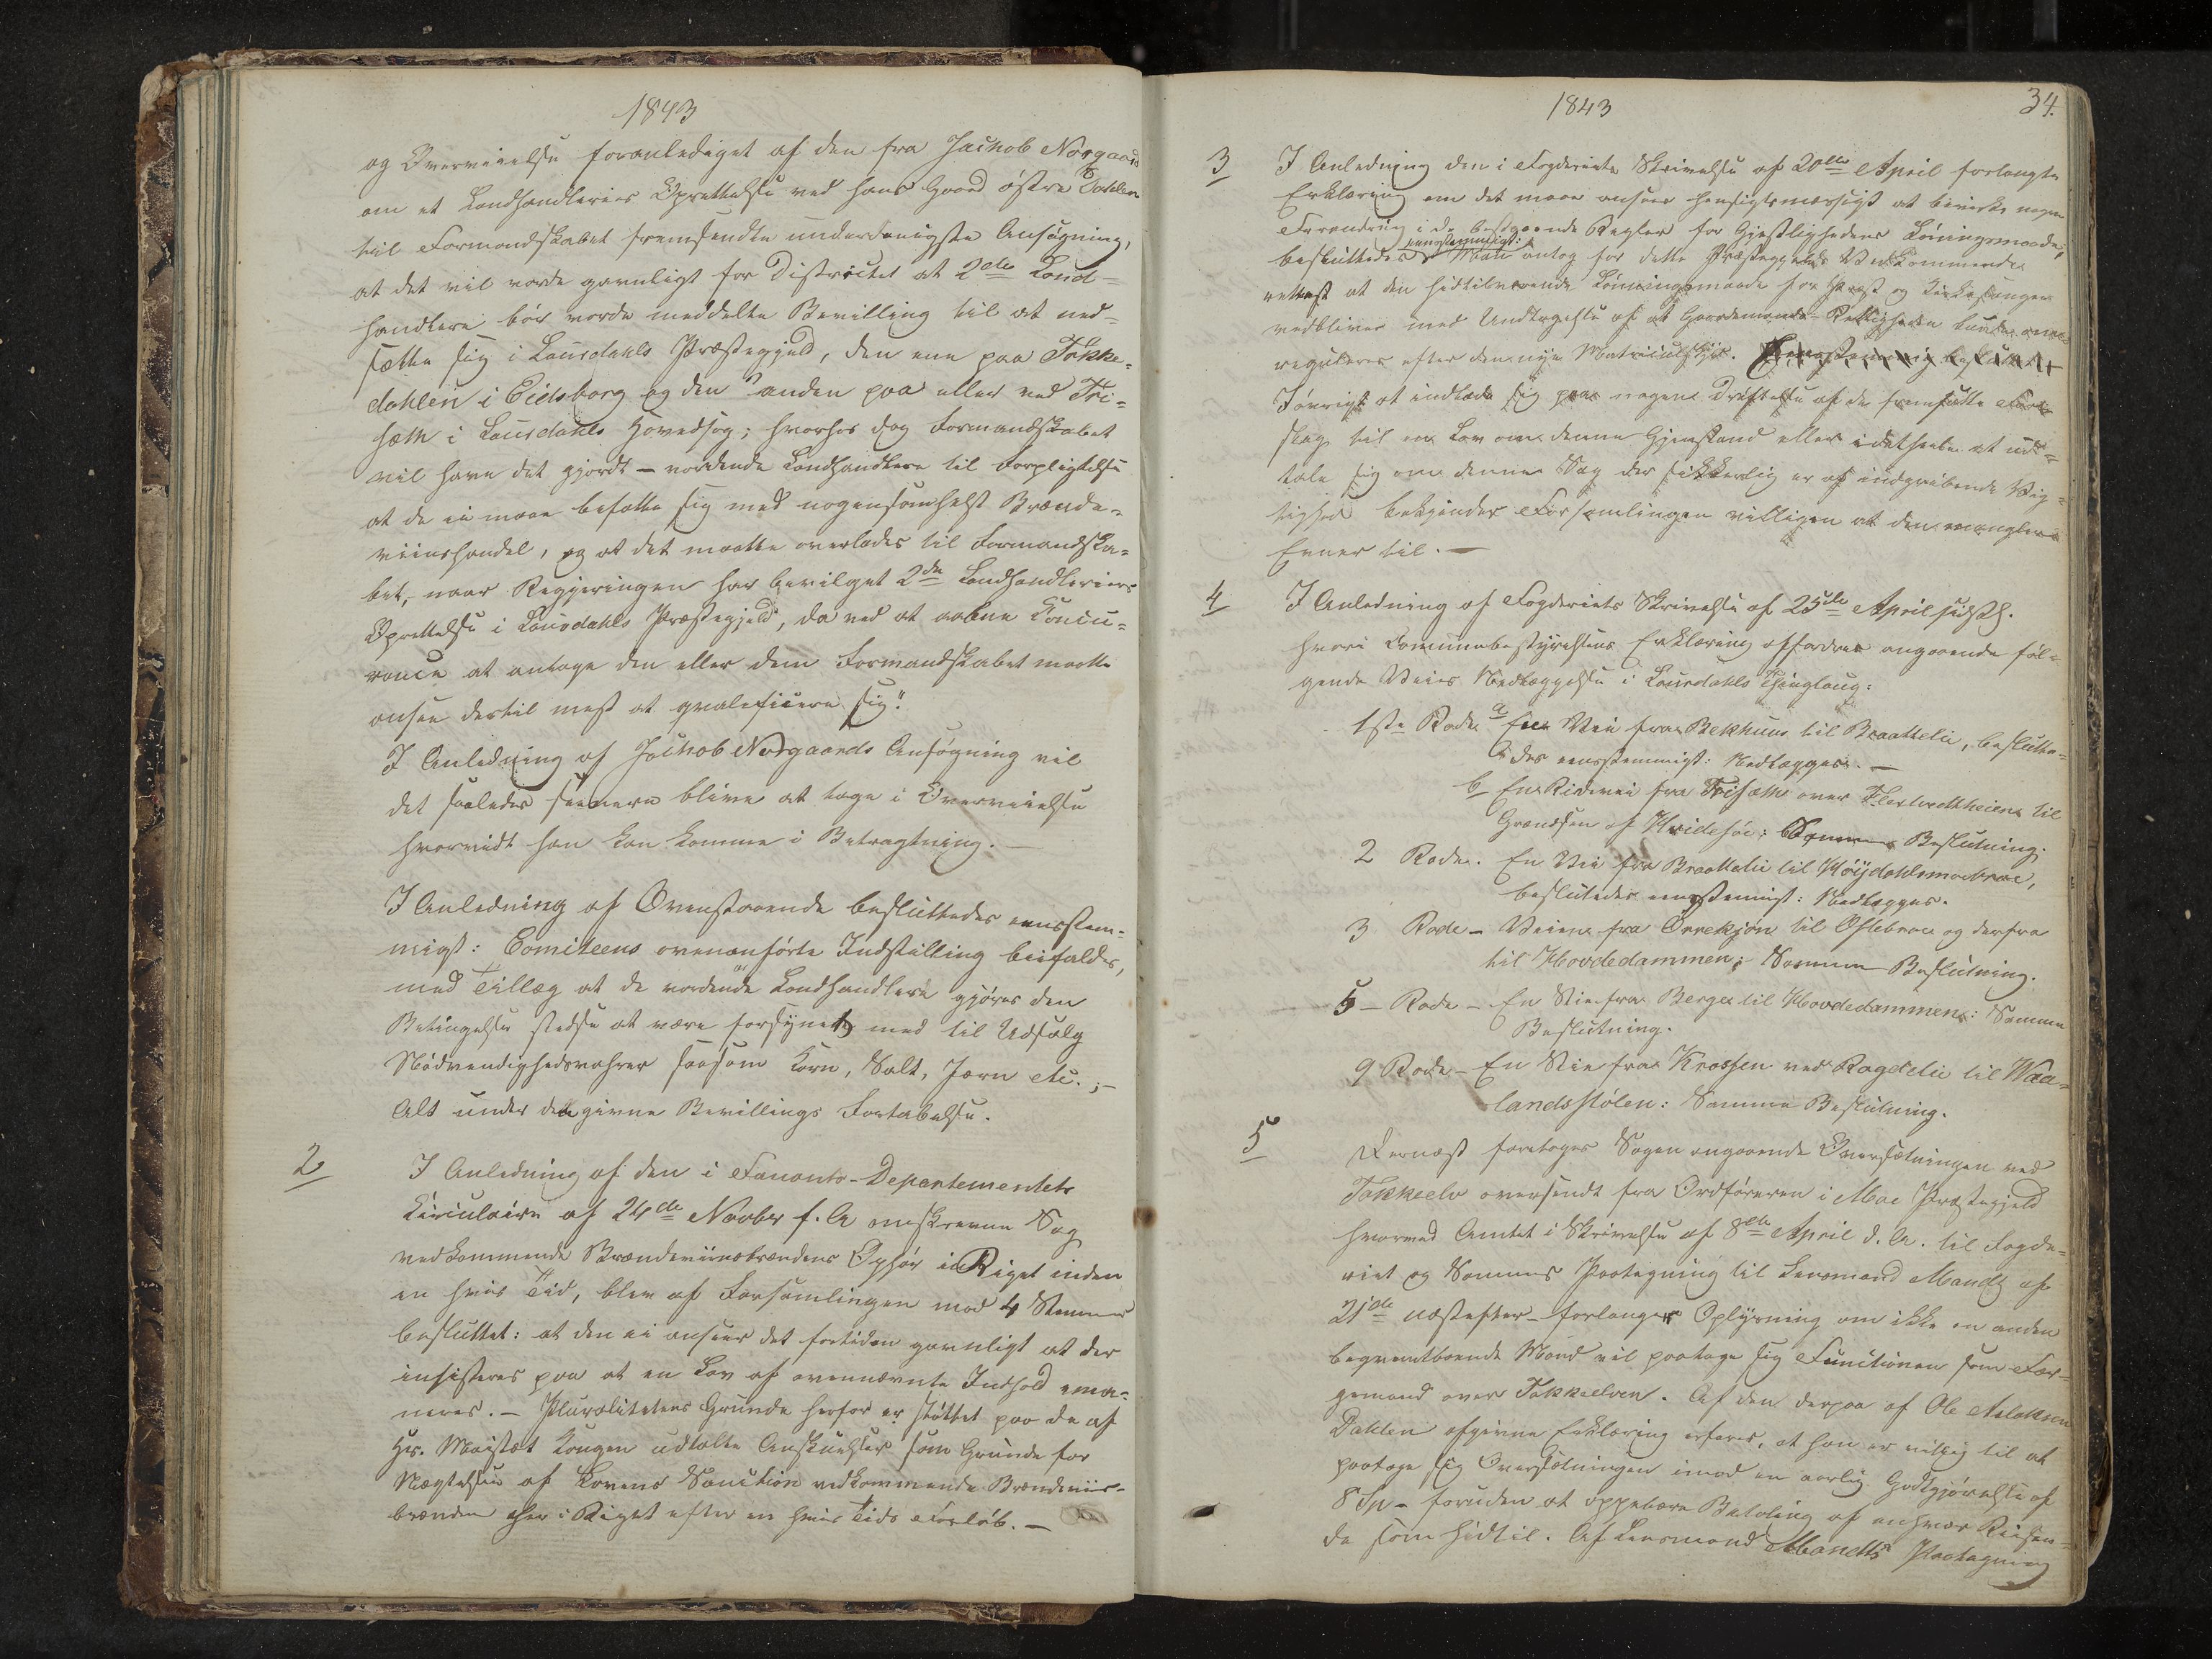 1843
og Overveielse foranlediget af den fra Jachob Norgaard
om et Landhandleries Oprettelse ved hans Gaard østre Dahlen
til Formandskabet fremsendte underdanigste Ansøgning,
at det vil være gavnligt for Districtet at 2de Land-
handlere bør vorde meddelte Bevilling til at ned-
sætte sig i Laurdahls Præstegjeld, den ene paa Tokke-
dahlen i Eidsborg og den anden paa eller ved Tri-
sæth i Laurdahls Hovedsog; hvorhos dog Formandskabet
vil have det gjordt – vordende Landhandlere til Forpligtelse
at de ei maae befatte sig med nogensomhelst Brænde-
viinshandel, og at det maatte overlades til Formandska-
bet, naar Regjeringen har bevilget 2de Landhandleriers
Oprettelse i Laurdahls Præstegjeld, da ved at aabne Concu-
rance at antage den eller dem Formandskabet maatte
ansee dertil mest at qvalificere sig."
I Anledning af Jachob Norgaards Ansøgning vil
det saaledes seenere blive at tage i Overveielse
hvorvidt han kan komme i Betragtning. –
I Anledning af Ovenstaaende besluttedes eensstem-
migt: Comiteens ovenanførte Indstilling beifaldes,
med Tillæg at de vordende Landhandlere gjøres den
Betingelse stedse at være forsynet med til Udsalg
Nødvendighedsvahrer saasom Korn, Salt, Jærn etc.; –
Alt under den givne Bevillings Fortabelse.
2 I Anledning af den i Finants-Departementets
Circulaire af 24de Novbr f. A omskrevne Sag
vedkommende Brændeviinsbrændens Ophør i Riget inden
en hvis Tid, blev af Forsamlingen mod 4 Stemmer
besluttet: at den ei anseer det fortiden gavnligt at der
insisteres paa at en Lov af ovennævnte Indhold ema-
neres. – Pluralitetens Grunde herfor er støttet paa de af
Hs. Majestæt Kongen udtalte Anskuelser som Grunde for
Nægtelsen af Lovens Sanction vedkommende Brændeviis-
brænden her i Riget efter en hvis Tids Forløb. –
1843
34.
3 I Anledning den i Fogderiets Skrivelse af 20de April forlangte
Erklæring om det maae ansees hensigtsmæssigt at bevirke nogen
Forandring i de bestaaende Regler for Gjestlighedens Lønningsmaade,
besluttedes eensstemmigt: Man antog for dette Præstegjelds Vedkommende
rettest at den hidtilværende Lønningsmaade for Præst og Kirkesanger
vedbliver med Undtagelse af at Gaardmands-Rettigheden
reguleres efter den nye Matriculskyld.
Iøvrigt at indlade sig paa nogen Drøftelse af de fremsatte For-
slag til en Lov om denne Gjenstand eller idethele at ud-
tale sig om denne Sag der sikkerlig er af indgribende Vig-
tighed bekjender Forsamlingen villigen at den mangler
Evner til. –
4 I Anledning af Fogderiets Skrivelse af 25de April sidstl.
hvori Communebestyrelsens Erklæring affordres angaaende føl-
gende Veies Nedlæggelse i Laurdahls Thinglaug:
1ste Rode a En Vei fra Bekhuus til Braattelie, beslutte-
des eensstemmigt: Nedlægges. –
b En Ridevei fra Trisæth over til
Grændsen af Hvidesøe: Samme Beslutning.
2 Rode. En Vei fra Braattelie til Høijdahlsmobroe,
besluttedes eensstemmigt: Nedlægges.
3 Rode – Veien fra Orrekjøn til Ofteboe og derfra
til Hovdedammen; Samme Beslutning.
5 – Rode – En Stie fra Berge til Hovdedammen: Samme
Beslutning.
9 Rode – En Stie fra Krossen ved Ragdelie til Waa-
landsstølen: Samme Beslutning.
5 Dernæst foretoges Sagen angaaende Oversætningen ved
Tokkeelv oversendt fra Ordføreren i Moe Præstegjeld
hvorved Amtet i Skrivelse af 8de April d. A. til Fogde-
riet og Sammes Paategning til Lensmand Mandt af
21de næstefter – forlanger Oplysning om ikke en anden
beqvemtboende Mand vil paatage sig Functionen som Fær-
gemand over Tokkeelven. Af den derpaa af Ole Aslaksen
Dahlen afgivne Erklæring erfares, at han er villig til at
paatage sig Oversætningen imod en aarlig Godtgjørelse af
8 Sp – foruden at oppebære Betaling af enhver Reisen-
de som hidtil. Af Lensmand Mandts Paategning